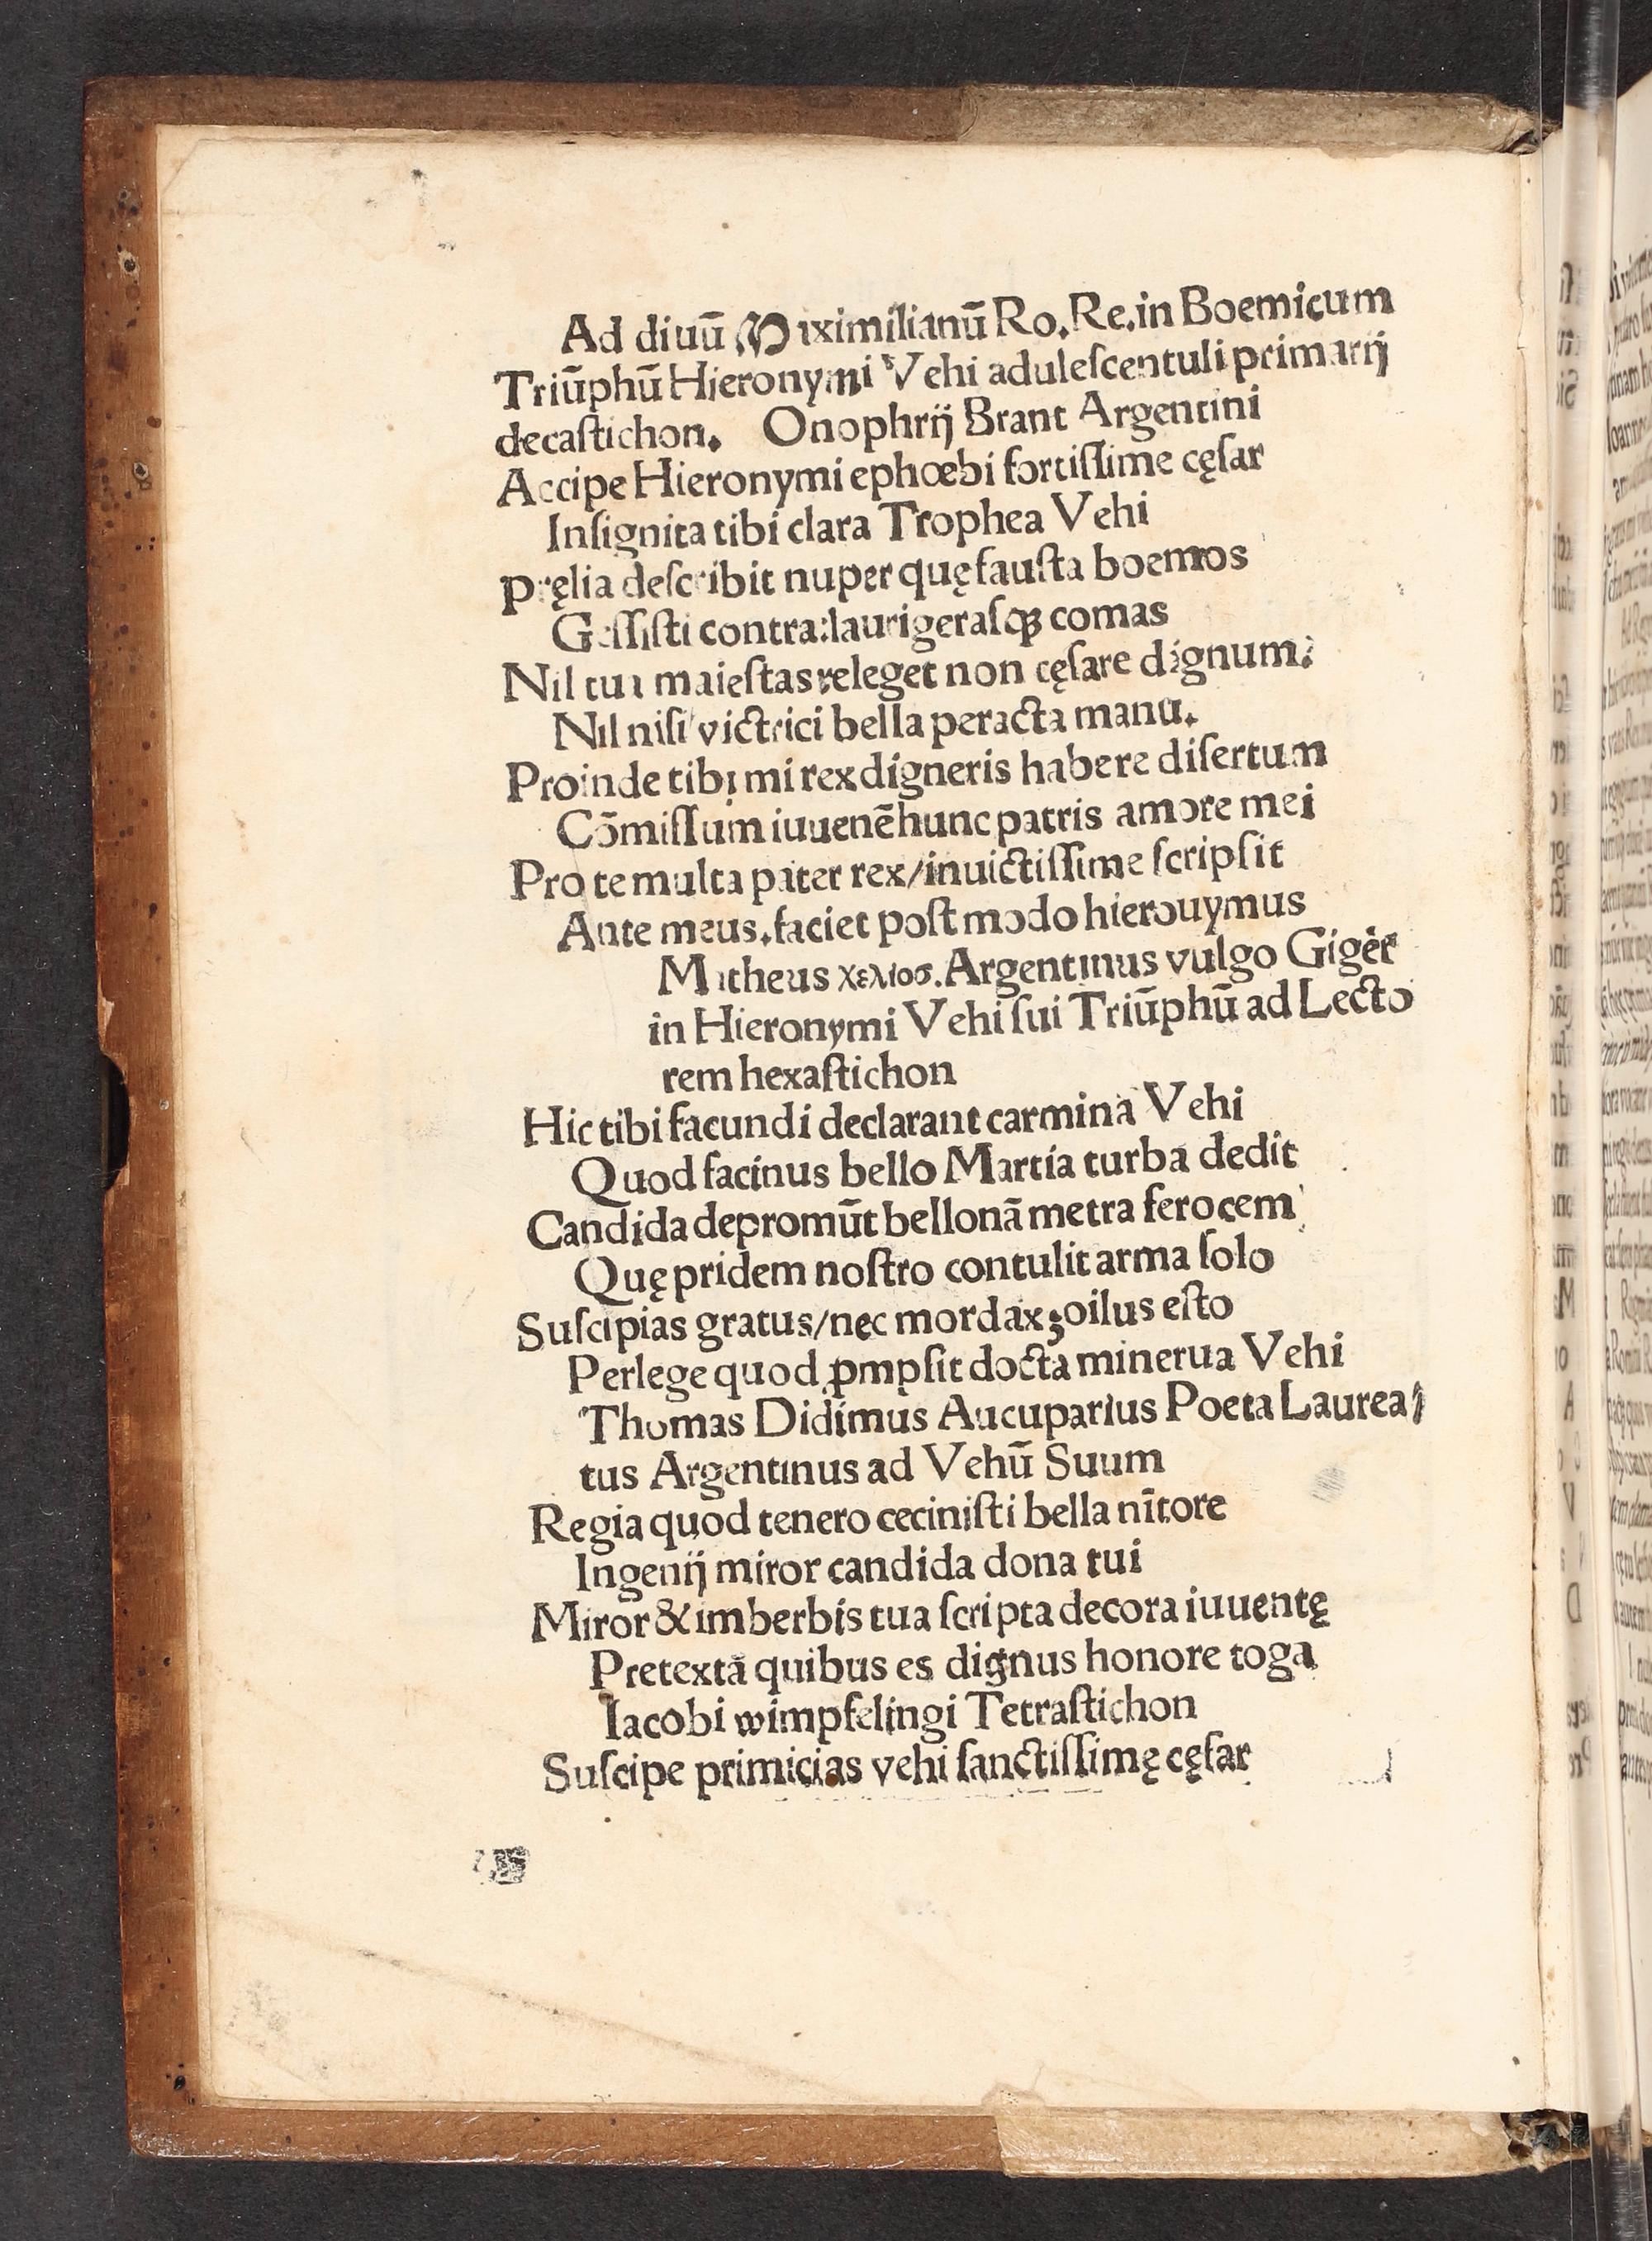 Ad diuū Maximilianū Ro. Re. in Boemicum
Triūphū Hieronymi Vehi aduleſcentuli primarij
decaſtichon. Onophrij Brant Argentini
Accipe Hieronymi ephœbi fortiſſime cęſar
Inſignita tibi clara Trophea Vehi
Pręlia deſcribit nuper quę fauſta boemos
Geſſiſti contra: laurigeraſqꝫ comas
Nil tua maieſtas releget non cęſare dignum:
Nil niſi victrici bella peracta manu.
Proinde tibi mi rex digneris habere diſertum
Cōmiſſum iuuenē hunc patris amore mei
Pro te multa pater rex/inuictiſſime ſcripſit
Ante meus. faciet poſt modo hierouymus
Matheus χελιοσ. Argentinus vulgo Giger
in Hieronymi Vehi ſui Triūphū ad Lecto
rem hexaſtichon
Hic tibi facundi declarant carmina Vehi
Quod facinus bello Martia turba dedit
Candida depromūt bellonā metra ferocem
Quę pridem noſtro contulit arma ſolo
Suſcipias gratus/nec mordax ʒoilus eſto
Perlege quod ꝓmpſit docta minerua Vehi
Thomas Didimus Aucuparius Poeta Laurea⸗
tus Argentinus ad Vehū Suum
Regia quod tenero ceciniſti bella nītore
Ingenij miror candida dona tui
Miror & imberbis tua ſcripta decora iuuentę
Pretextā quibus es dignus honore toga
Iacobi wimpfelingi Tetraſtichon
Suſcipe primicias vehi ſanctiſſimę cęſar